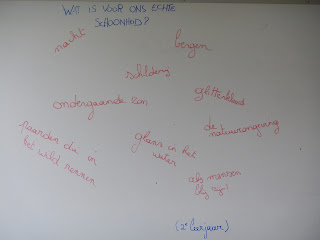 WAT IS VOOR ONS ECHTE
SCHOONHEID?
nacht
bergen
schilderij
glitterkleed
ondergaande zon
de
natuuromgeving
paarden die in
het wild rennen
glans in het
water
als mensen
blij zijn!
(2e leerjaar)